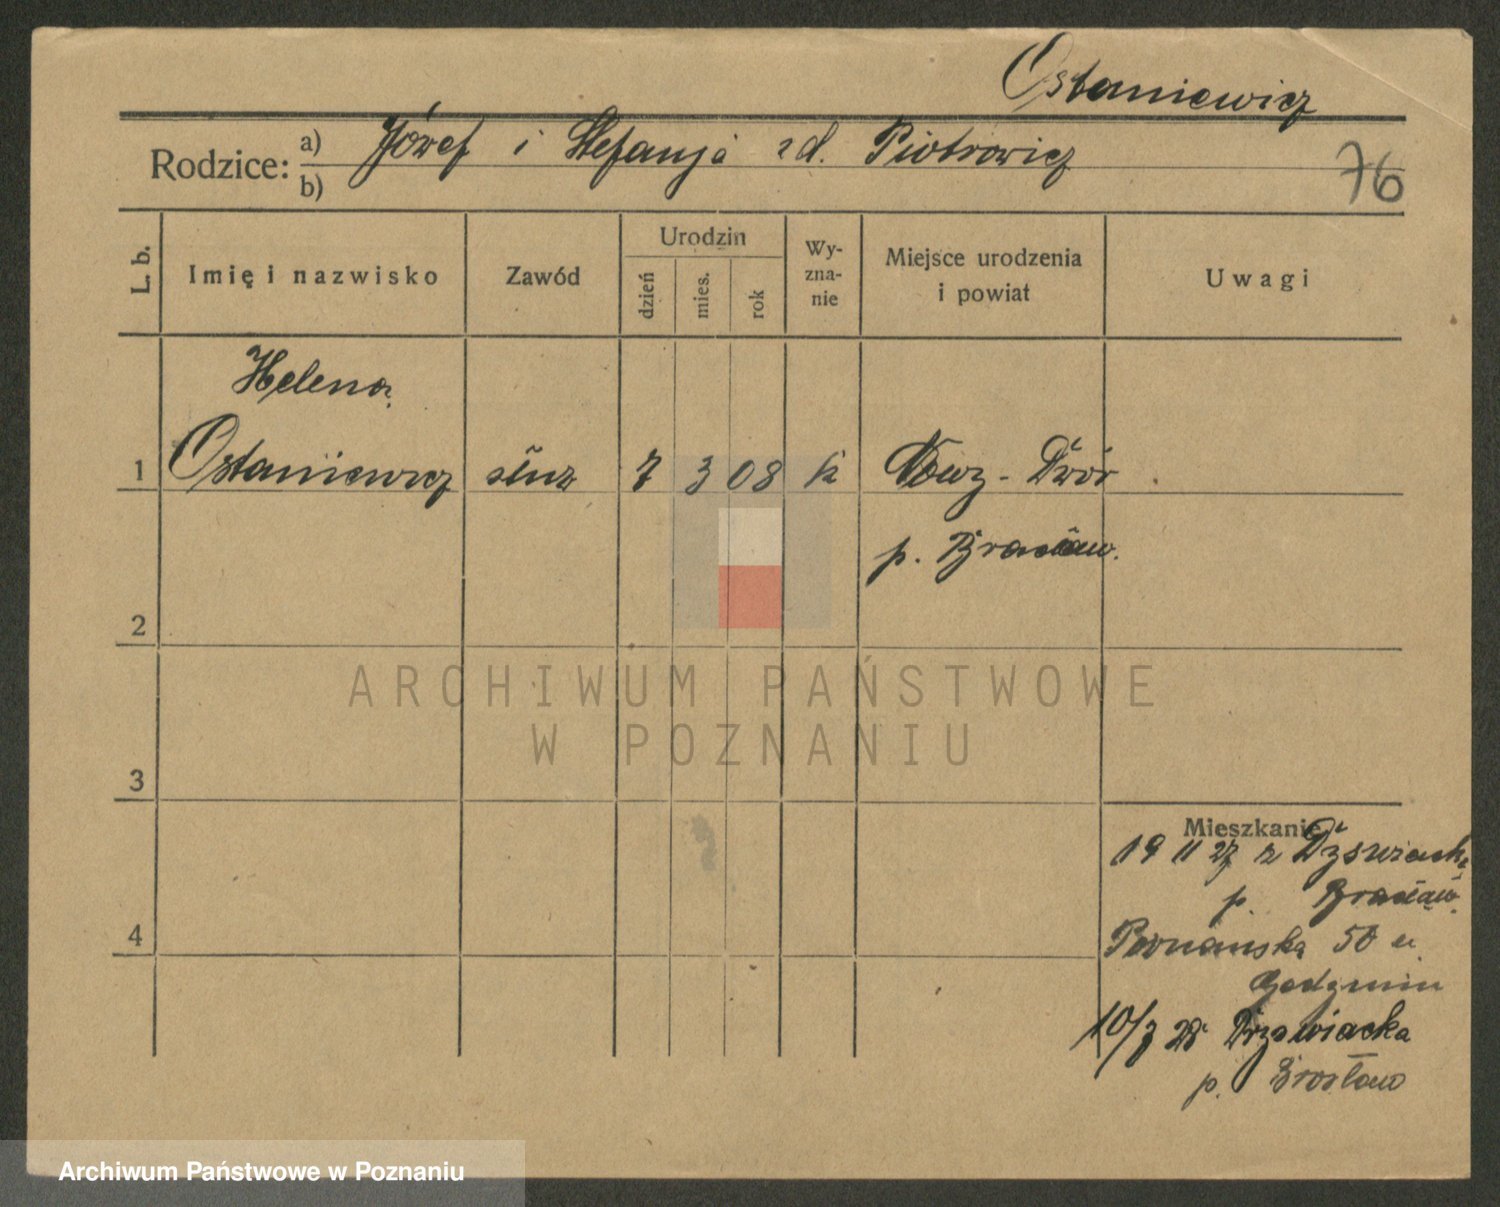 Ostaniewicz
Rodzice: a) Józef i Stefanja zd. Piotrowicz
b)
76
L. b.
Imię i nazwisko
Zawód
Urodzin
dzień
mies.
rok
Wy-
zna-
nie
Miejsce urodzenia
i powiat
Uwagi
Helena
1 Ostaniewicz służ 7 3 08 k Nowy-Dwór
p. Bracław.
2
ARCHIWUM PAŃSTWOWE
W POZNANIU
3
Mieszkanie
19 11 27 z
p. Bracław.
4
Poznańska 50 u
10/7 28
p.
Archiwum Państwowe w Poznaniu